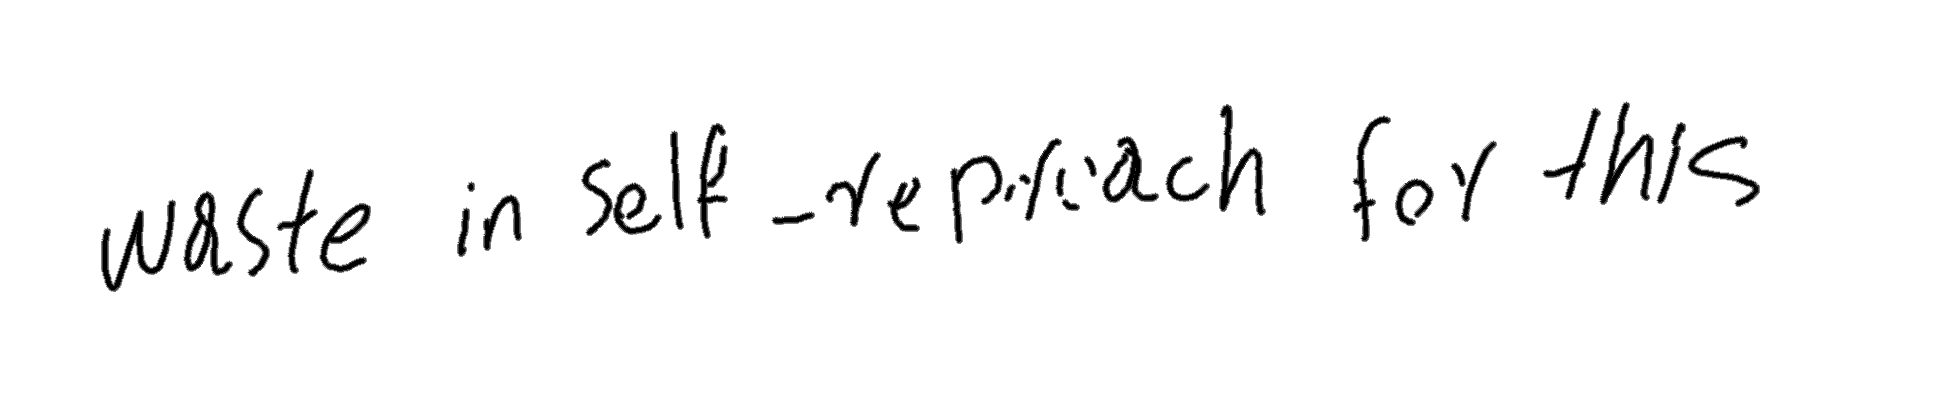 waste in self-reproach for this